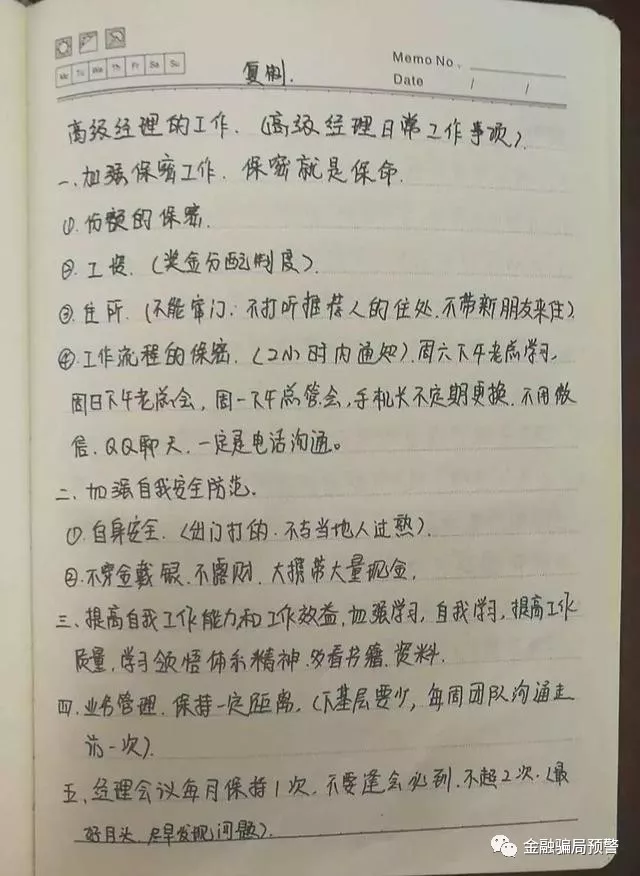 Mo Tu We Th Fr Sa Su
Memo No.
Date / /
复制.
高级经理的工作.(高级经理日常工作事项).
一.加强保密工作.保密就是保命.
①.份额的保密.
②.工资.(奖金分配制度).
③.住所.(不能窜门:不打听推荐人的住处.不带新朋友来住)
④.工作流程的保密.(2小时内通知).周六下午老总学习,
周日下午老总会,周一下午总管会,手机长不定期更换.不用微
信.QQ聊天.一定是电话沟通。
二.加强自我安全防范.
①.自身安全.(出门打的.不与当地人过熟).
②.不穿金戴银.不露财.大携带大量现金.
三、提高自我工作能力和工作效益.加强学习,自我学习,提高工作
质量.学习领悟体系精神.多看书籍.资料.
四.业务管理.保持一定距离.(下基层要少,每周团队沟通走
访一次).
五、经理会议每月保持1次.不要逢会必到.不超2次.(最
好月头.尽早发现问题).
金融骗局预警